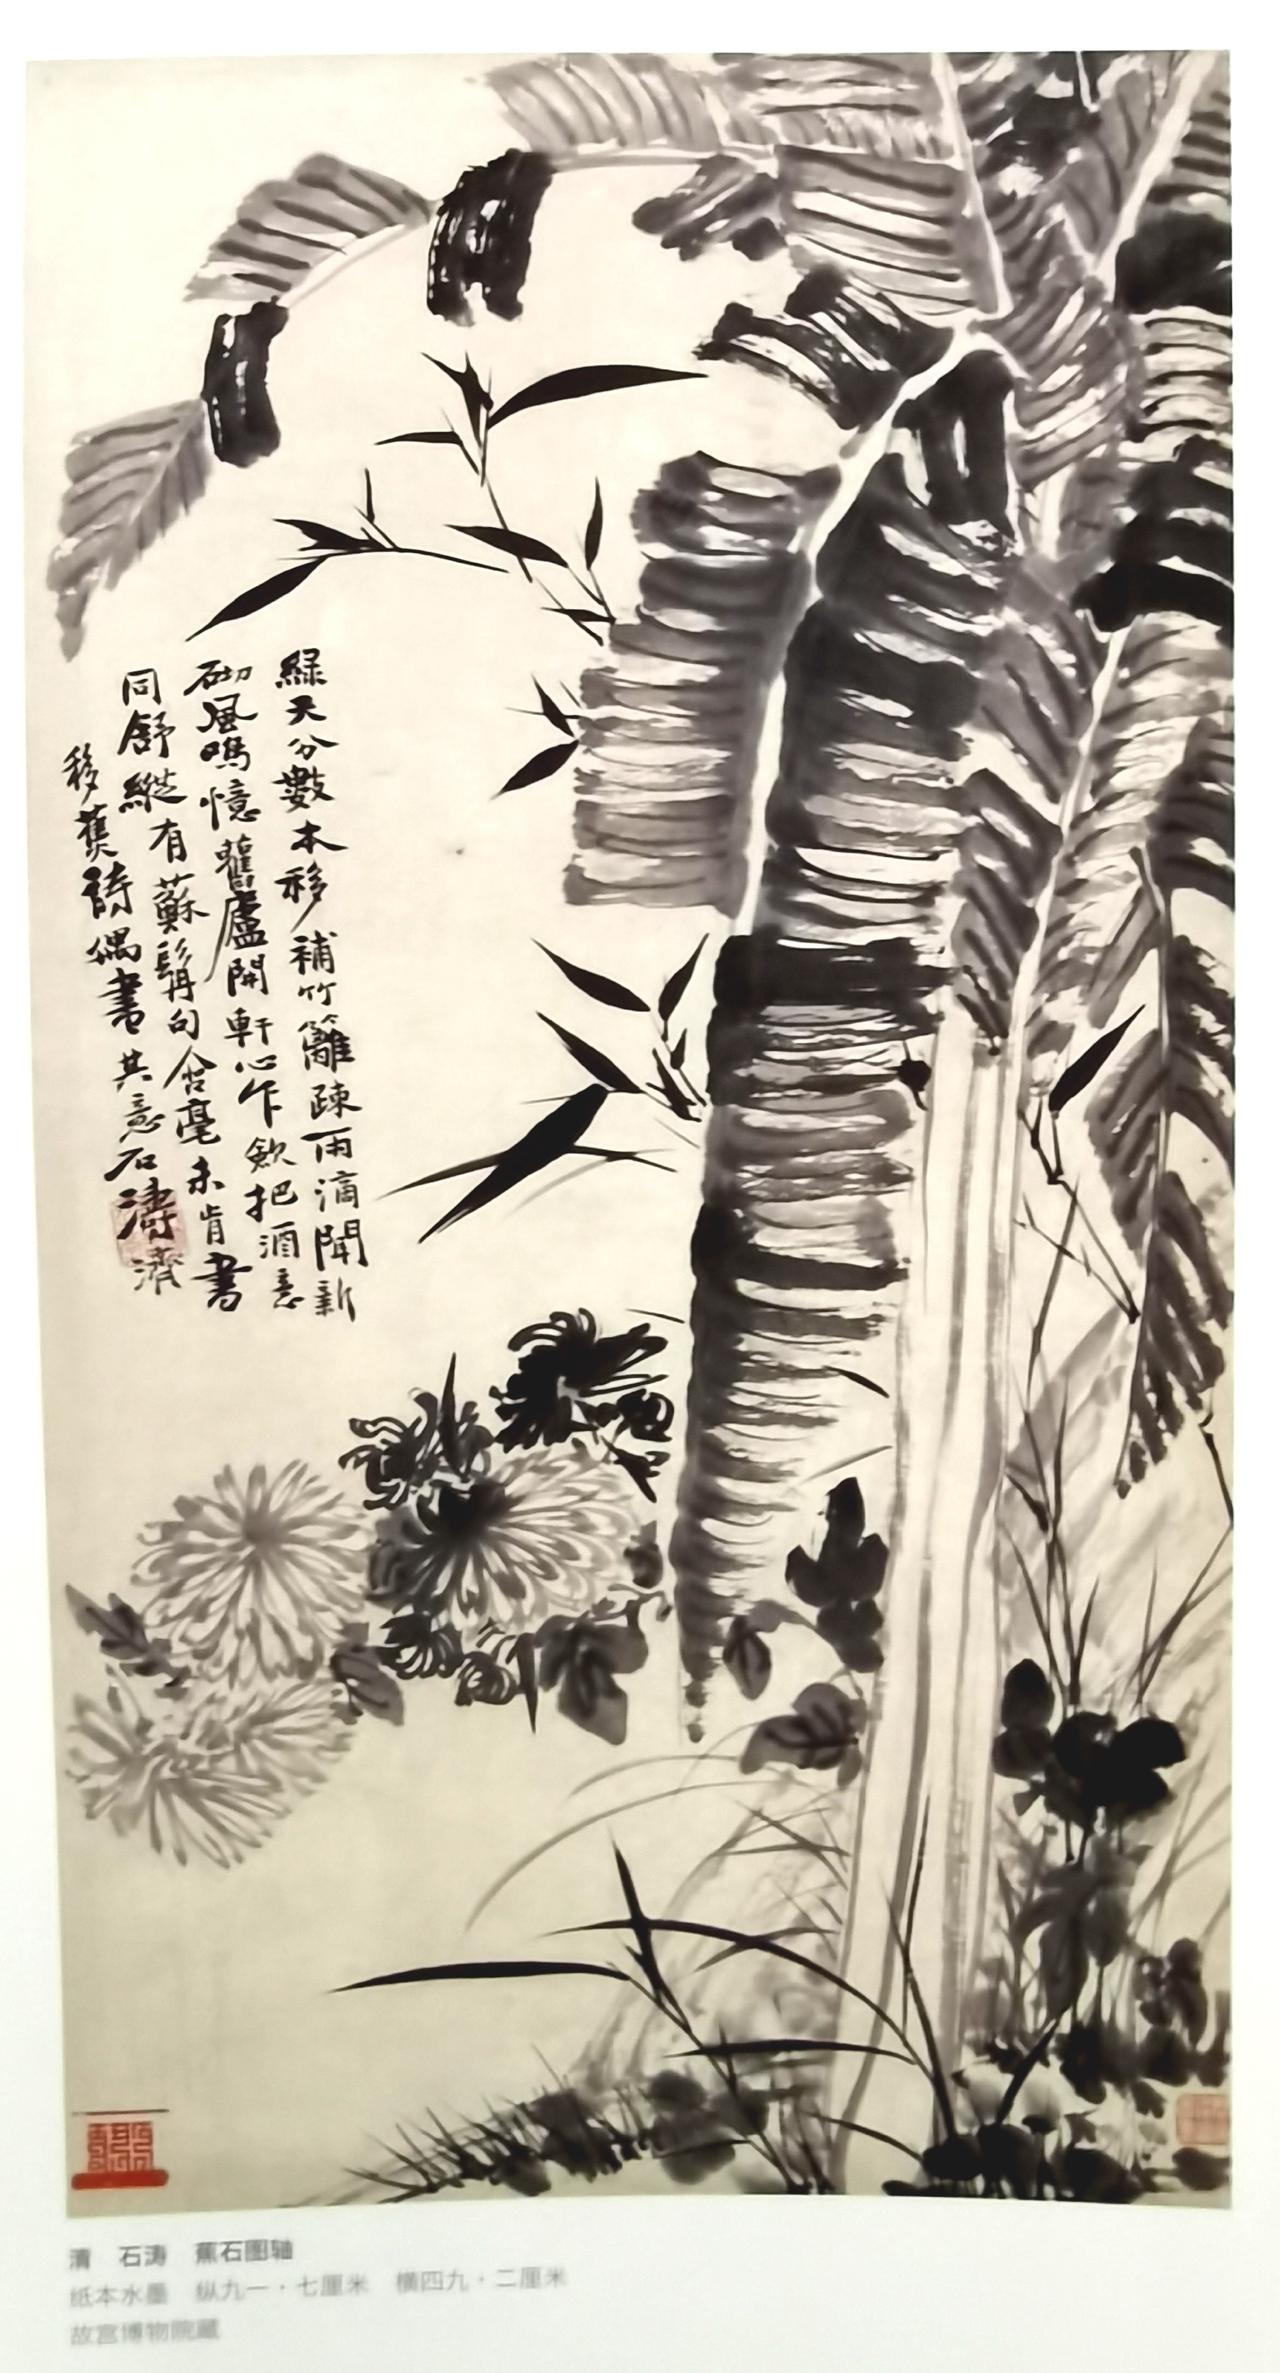 綠天分數本移補竹籬疎雨滴聞新
砌風鳴憶舊廬開軒心乍歛把酒意
同舒縱有蘇髯句含毫未肯書
移蕉詩偶書其意石濤濟
清 石涛 蕉石图轴
纸本水墨 纵九一·七厘米 横四九·二厘米
故宫博物院藏